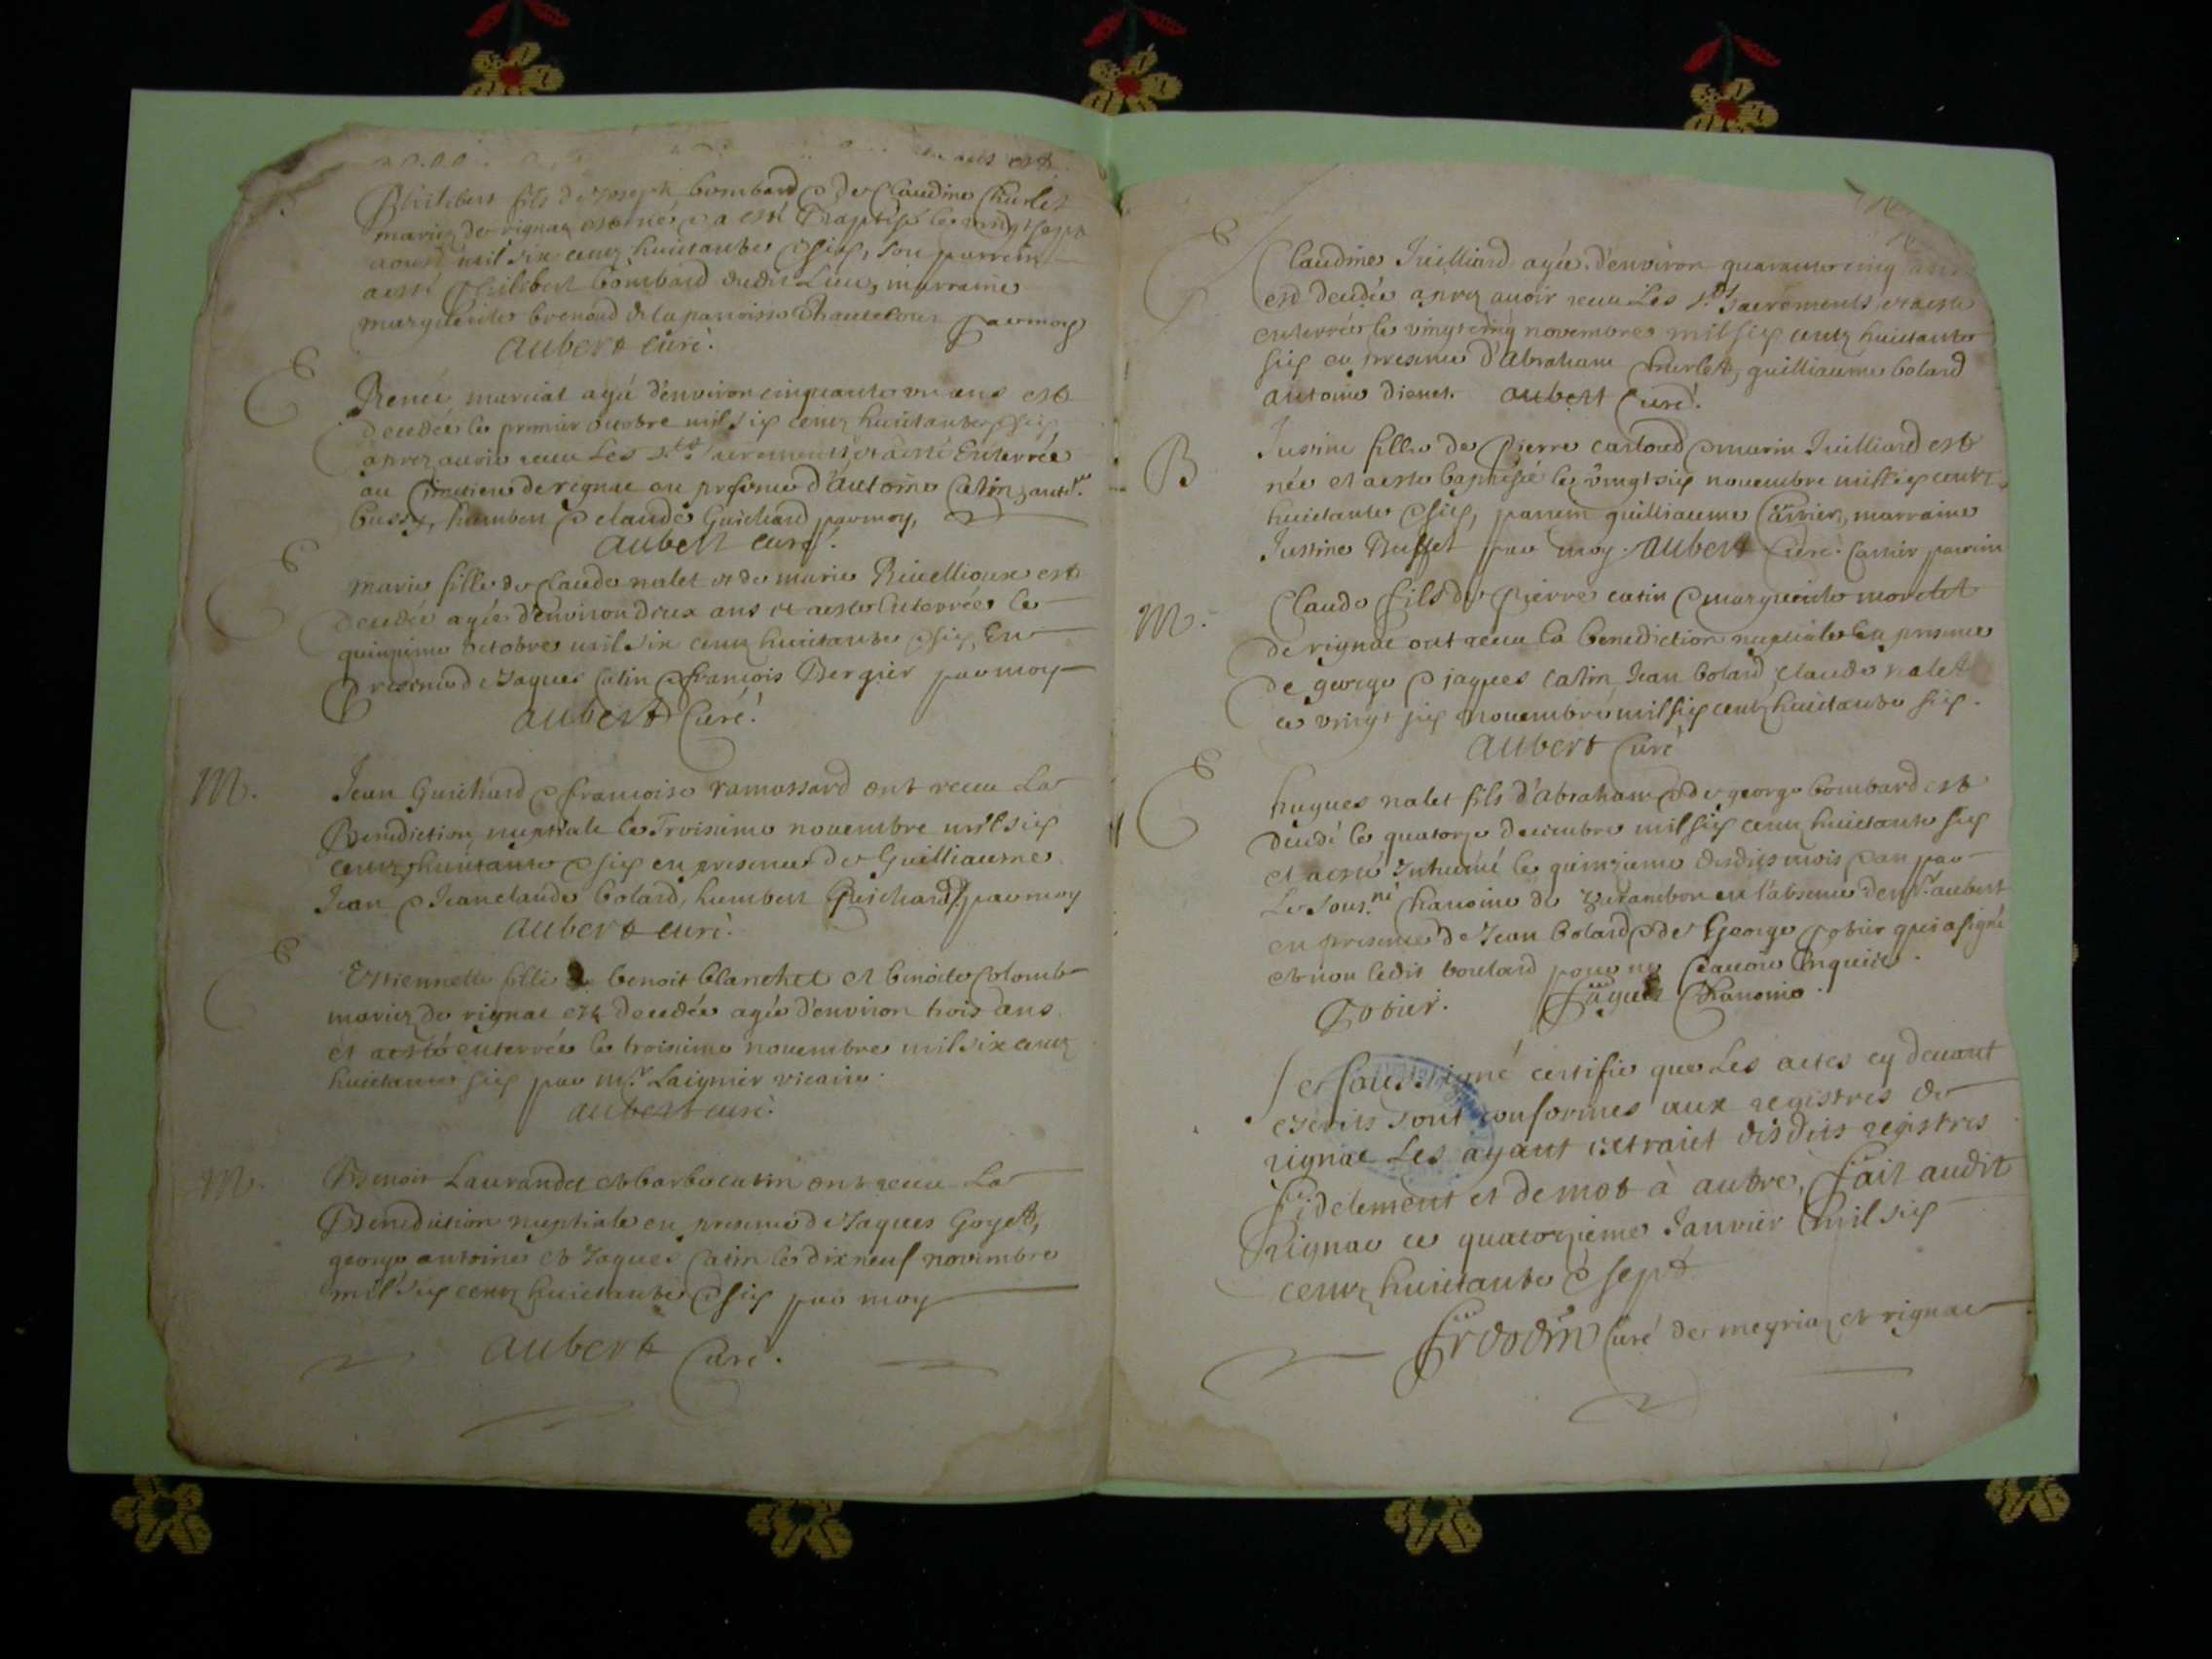 Philibert fils de Joseph bombard & de Claudine Churlet
mariez de rignat est né & a esté Baptisé le vingt sept
aoust mil six centz huictante & six, son parrein
aesté Philibert bombard dudit Lieu, marraine
marguerite brenoud de la paroisse d'hautecour par moy
aubert curé.
E
Renée marciat agée d'environ cinquante un ans est
decedée le premier octobre mil six centz huictante & six
aprez avoir receu Les Sts. Sacrements, et aesté Enterrée
au Cimetiere de rignat en presence d'antoine Catin,
bussy, humbert & claude Guichard par moy,
aubert curé.
E
marie fille de Claude nalet et de marie Rivellioux est
decedée agée d'environ deux ans et aesté Enterrée le
quinzieme octobre mil six centz huictante & six, En
presence de Jaques Catin & françois Bergier par moy
aubert Curé!
M.
Jean Guichard & françoise ramassard ont receu La
Benediction nuptiale le Troisieme novembre mil six
centz huictante & six en presence de Guilliaume
Jean & Jean claude bolard, humbert Guichard, par moy
aubert curé.
E
Estiennette fille de benoit blanchet et benoite Colomb
mariez de rignat est decedée agée d'environ trois ans
et aesté enterrée le troisieme novembre mil six centz
huictante six par mr. Laignier vicaire.
aubert curé.
M.
Benoit Laurandet et barbe catin ont receu La
Benediction nuptiale en presence de Jaques Goyet,
george antoine et Jaques Catin le dix neuf novembre
mil six centz huictante & six par moy
aubert Curé.
E
Claudine Juilliard agée d'environ quarante cinq ans
est decedée aprez avoir receu Les Sts Sacrements et aesté
enterrée le vingt cinq novembre mil six centz huictante
six en presence d'Abraham Churlet, guilliaume bolard
antoine dienet. aubert Curé.
B
Justine fille de Pierre cartoud & marie Juilliard est
née et aesté baptisée le vingt six novembre mil six centz
huictante & six, parrein guilliaume Carrier, marraine
Justine Buffet par moy. Aubert Curé. Carrier parrein
M.
Claude fils de Pierre catin & marguerite moretet
de rignat ont receu la benediction nuptiale En presence
de george & jaques catin Jean bolard claude nalet
ce vingt six novembre mil six centz huictante six.
aubert Curé
E
hugues nalet fils d'abraham & de george bombard est
decedé le quatorze decembre mil six centz huictante six
et aesté Inhumé le quinzieme desdits mois & an par
Le sous.né chanoine de Varambon en l'absence de mr. aubert
en presence de Jean bolard & de George Gobier qui a signé
et non ledit boulard pour ne scavoir Enquis.
Gobier. Jaques Chanoine.
Je Soussigné certifie que Les actes cy devant
escrits sont conformes aux registres de
rignat Les ayant extraict desdits registres
fidelement et de mot à autre, fait audit
Rignat ce quatorzieme Janvier mil six
centz huictante & sept
Curé de meyriaz et rignat